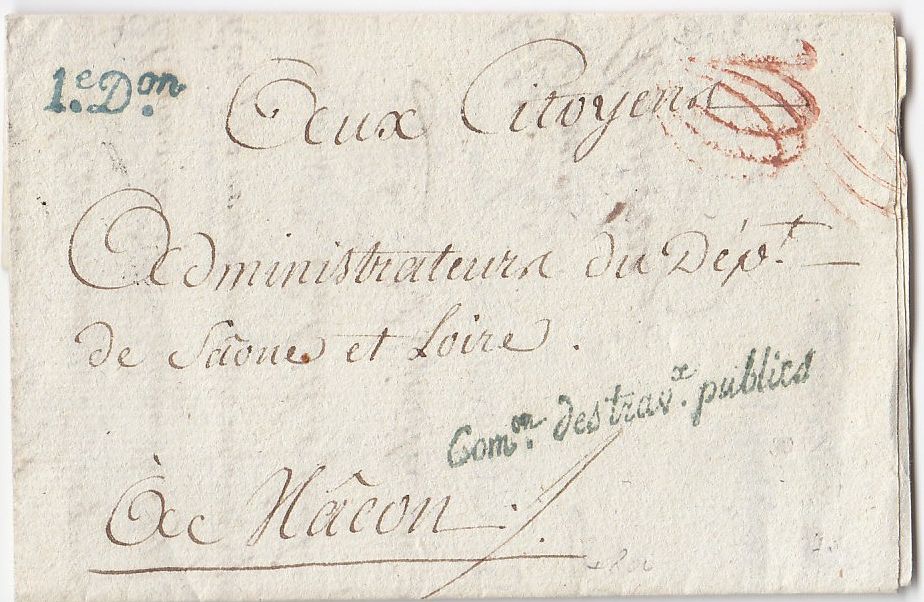 1.e D.on
Aux Citoyens
Administrateurs du Dép.t
de Saône et Loire.
Com.on des trav.x publics
À Mâcon.